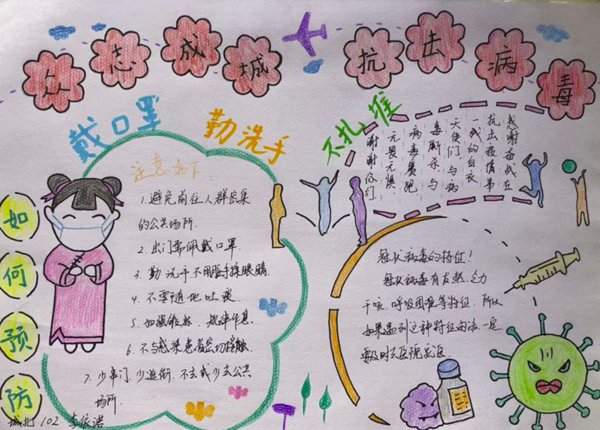 众志成城 抗击病毒
戴口罩
勤洗手
不扎堆
如何预防
注意如下
1.避免前往人群密集
的公共场所.
2.出门需佩戴口罩.
3.勤洗手不用脏手揉眼睛.
4.不要随地吐痰
5.加强锻炼,规律作息.
6.不与感染患者密切接触.
7.少串门,少逛街,不去或少去公共
场所.
感谢奋战在
抗击疫情第
一线的白衣
天使们与病
毒厮杀,与
病毒赛跑
无畏无惧
谢谢你们
冠状病毒的特征!
冠状病毒有发热、乏力
干咳、呼吸困难等特征,所以
如果遇到这种特征的话一定
要及时去医院就医.
102 李依诺